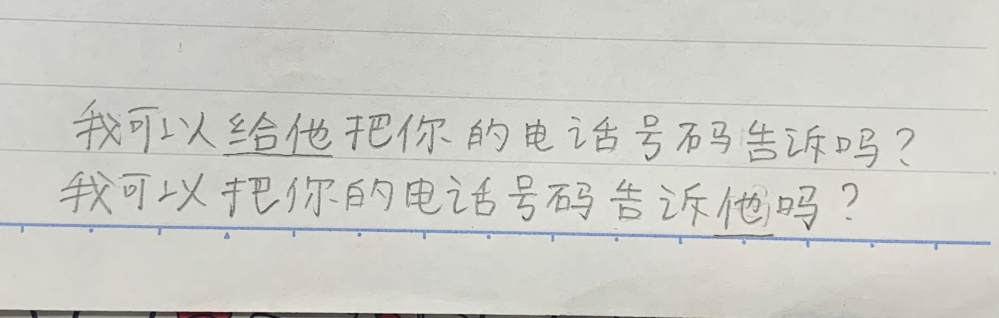 我可以给他把你的电话号码告诉吗？
我可以把你的电话号码告诉他吗？